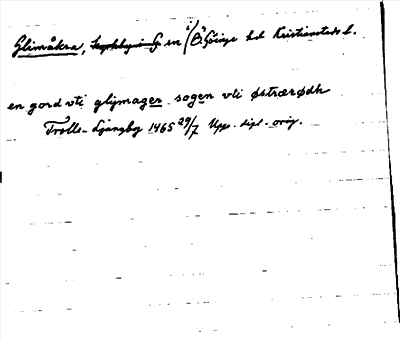 Glimåkra, sn i Ö Göinge hd Kristianstads l.
en gord vti glijmager sogen vti østrærødh
Trolle-Ljungby 1465 29/7 Upps. dipl. orig.